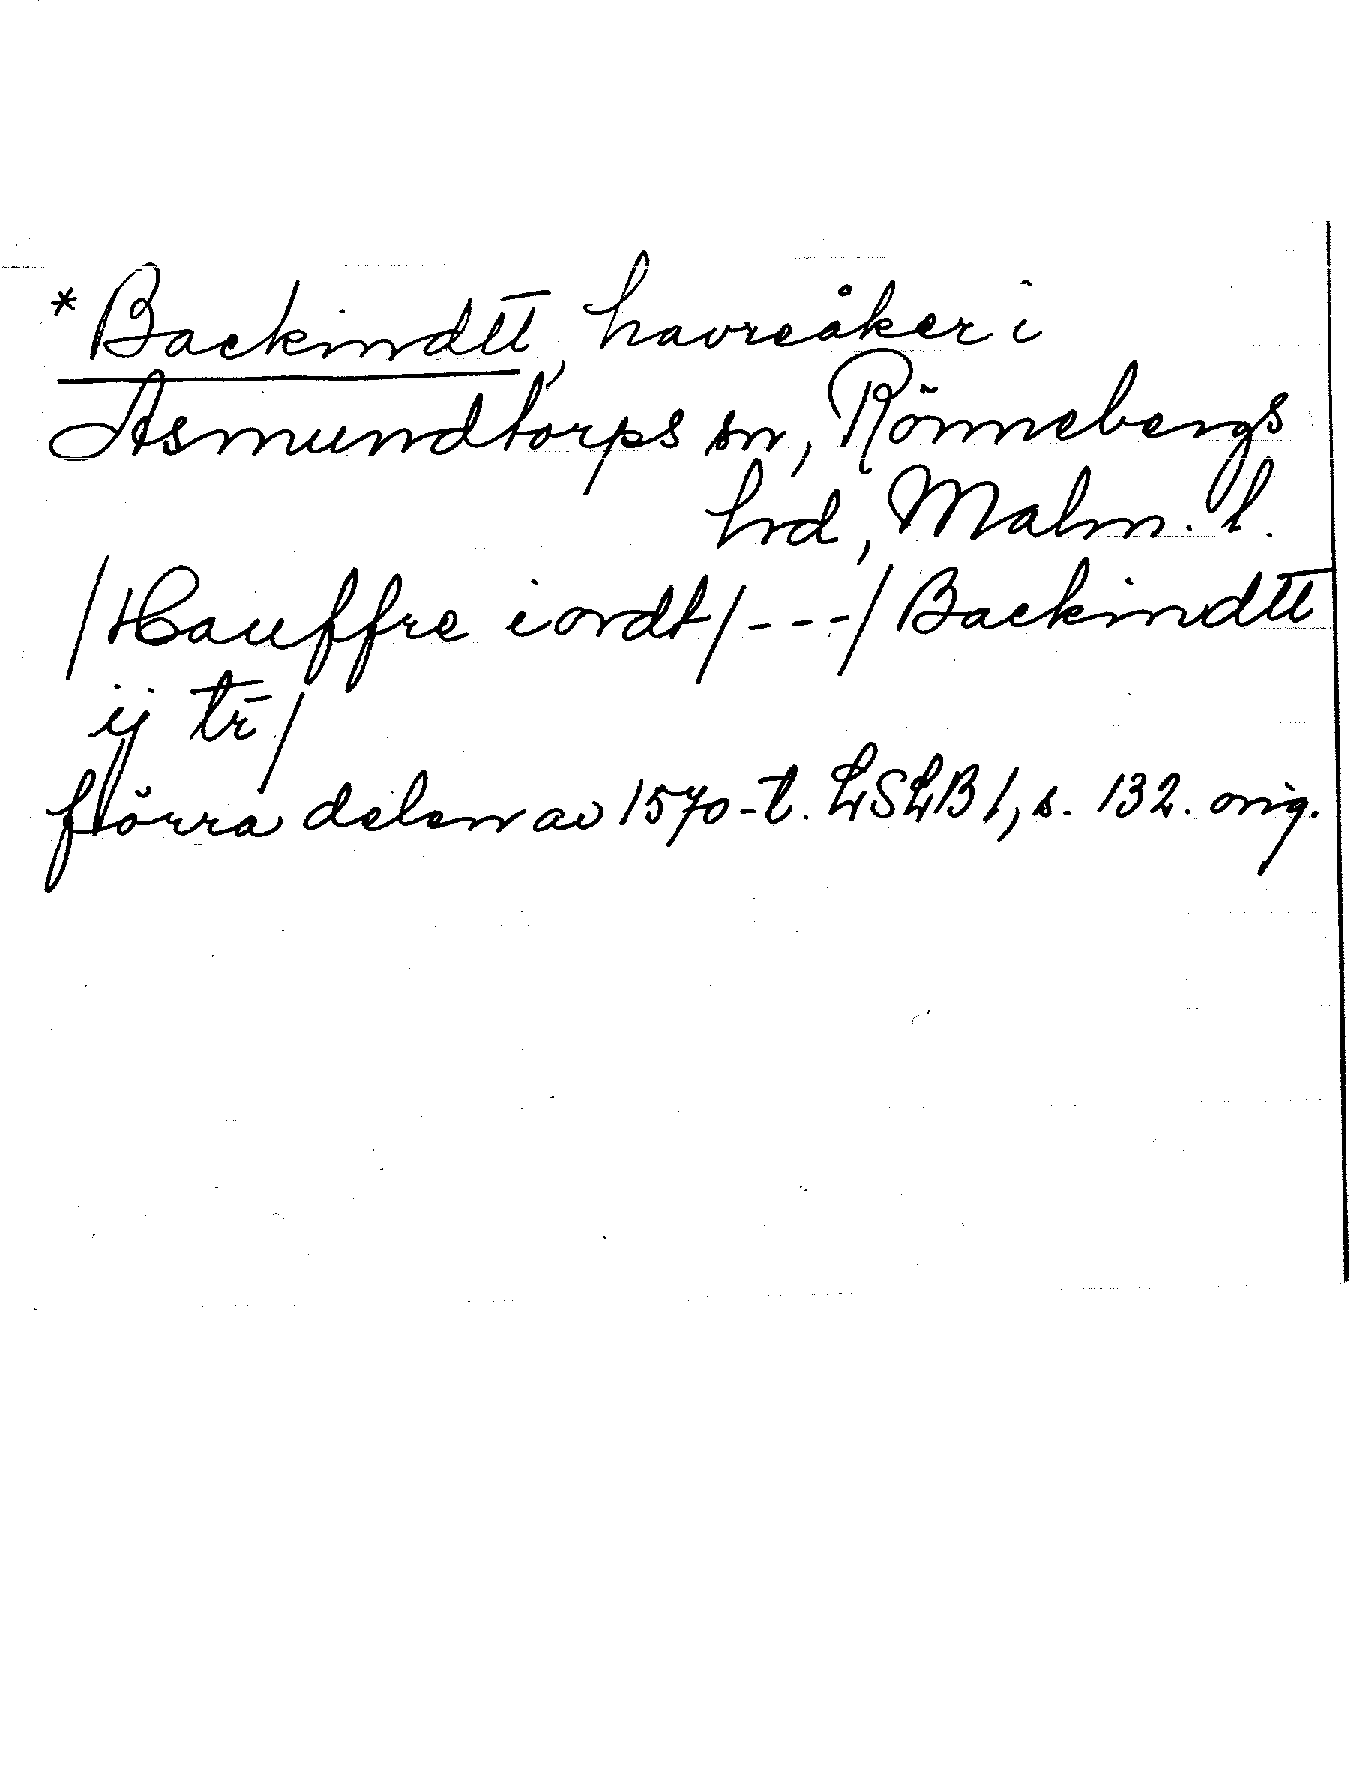 *Backindtt, havreåker i
Asmundtorps sn, Rönnebergs
hrd, Malm. l.
/Hauffre iordt/---/Backindtt
ij tr̄/
förra delen av 1570-t. LSLB 1, s. 132. orig.